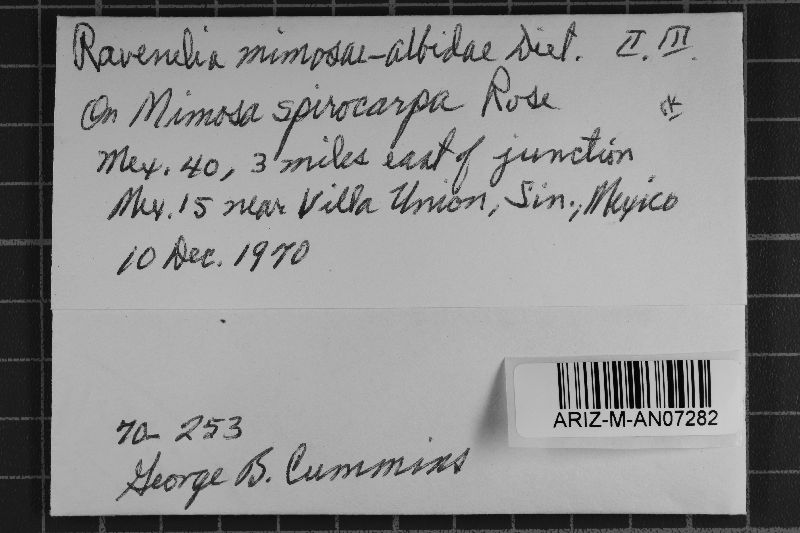 Ravenelia mimosae-albidae Diet. II. III.
On Mimosa spirocarpa Rose
Mex. 40, 3 miles east of junction
Mex. 15 near Villa Union, Sin., Mexico
10 Dec. 1970
70-253
George B. Cummins
ARIZ-M-AN07282